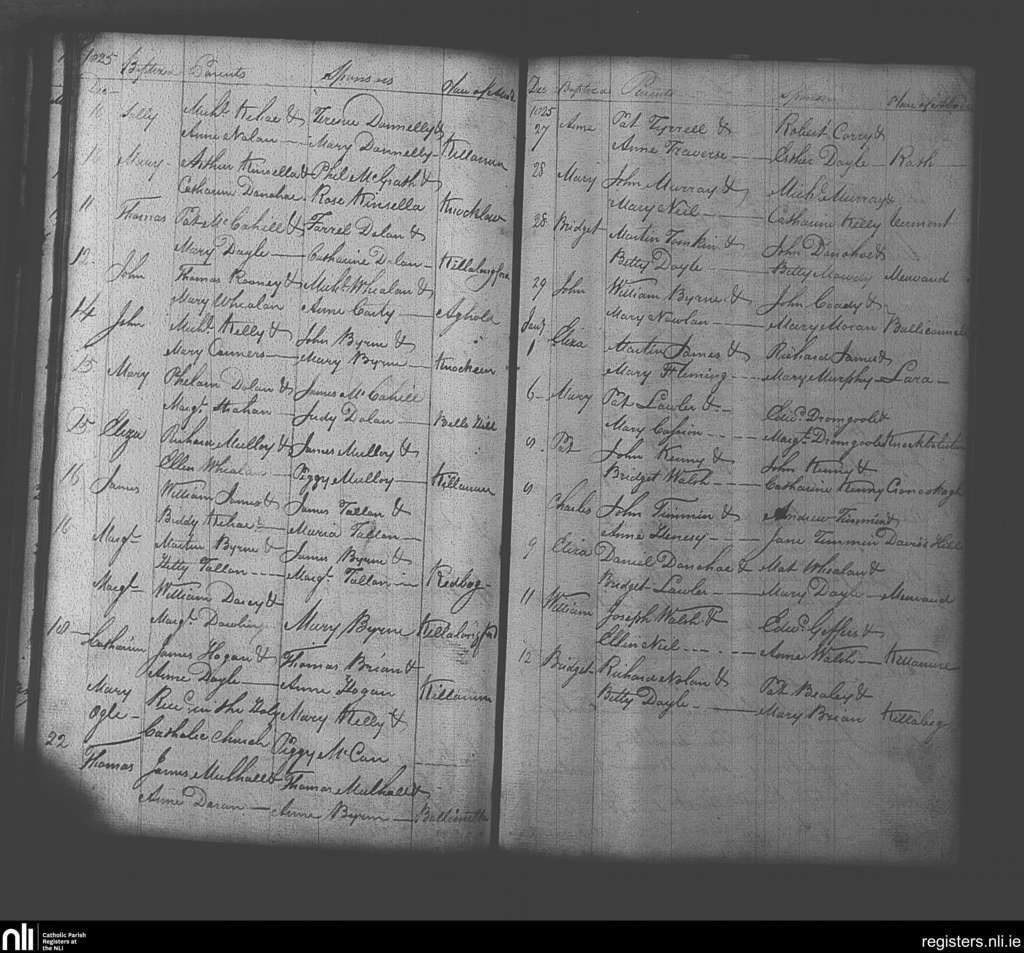 1825 Baptized Parents Sponsors Place of Abode
Dec
10 Sally Michl Kehoe & Terence Donnelly &
Anne Nolan — Mary Donnelly — Killanure
Mary Arthur Kinsella & Phil McGrath &
Catharine Donahoe. Rose Kinsella
11 Thomas Pat McCahill & Farrel Dolan &
Mary Doyle — Catharine Dolan —
12 John Thomas Rooney & Michl Whealan &
Mary Whealan Anne Carty — Aghold
14 John Michl Kelly & John Byrne &
Mary Conners — Mary Byrne —
15 Mary Phelam Dolan & James McCahill
Margt Strahan — Judy Dolan — Bells Hill
15 Eliza Richard Mulloy & James Mulloy &
Ellen Whealan — Peggy Mulloy — Killanure
16 James William James & James Tallan &
Biddy Kehoe — Maria Tallan —
16 Margt Martin Byrne & James Byrne &
Hetty Tallan - - - Margt Tallan — Redbog —
Margt William Darcy &
Margt Dowling Mary Byrne
18 — Catharine James Hogan & Thomas Brian &
Anne Doyle — Anne Hogan Killanure
Mary Rec'd in the Holy Mary Kelly &
Ogle — Catholic Church Peggy McCan
22
Thomas James Mulhall & Thomas Mulhall &
Anne Doran — Anne Byrne —
Dec Baptized Parents Sponsors Place of Abode
1825
27 Anne Pat Tyrrell & Robert Corry &
Anne Traverse — Esther Doyle — Rath —
28 Mary John Murray & Michl Murray &
Mary Neil — Catharine Kelly
28 Bridget Martin Tomkin & John Donohoe &
Betty Doyle — Betty
29 John William Byrne & John Coady &
Mary Nowlan — Mary Moran
Jany
1 Eliza Martin James & Richard James &
Mary Fleming - - - Mary Murphy — Lara —
6 — Mary Pat Lawler & — Edwd Dromgoole &
Mary - - - Margt Dromgoole
8 Pat John Kenny & John Kenny &
Bridget Walsh — Catharine Kenny
8 Charles John Timmin & Andrew Timmin &
Anne Henesy — Jane Timmin Davis's Hill
9 Eliza Daniel Donahoe & Mat Whealan &
Bridget Lawler — Mary Doyle —
11 William Joseph Walsh & Edwd Jeffers &
Ellen Neil - - - - Anne Walsh — Killanure
12 Bridget Richard Nolan & Pat Bealey &
Betty Doyle — Mary Brian Killabeg
nli Catholic Parish
Registers at
the NLI
registers.nli.ie